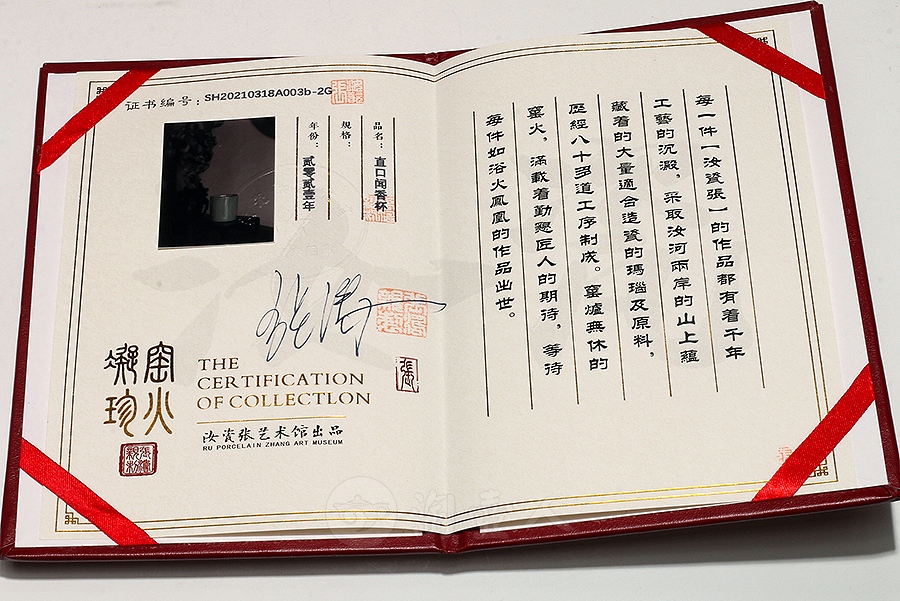 证书编号：SH20210318A003b-2G
品名：直口闻香杯
规格：
年份：贰零贰壹年
窑火
凝珍
THE
CERTIFICATION
OF COLLECTLON
汝瓷张艺术馆出品
RU PORCELAIN ZHANG ART MUSEUM
每一件一汝瓷張一的作品都有着千年
工藝的沉澱，采取汝河兩岸的山上蘊
藏着的大量適合造瓷的瑪瑙及原料，
歷經八十多道工序制成。窑爐無休的
窑火，滿載着勤懇匠人的期待，等待
每件如浴火鳳凰的作品出世。